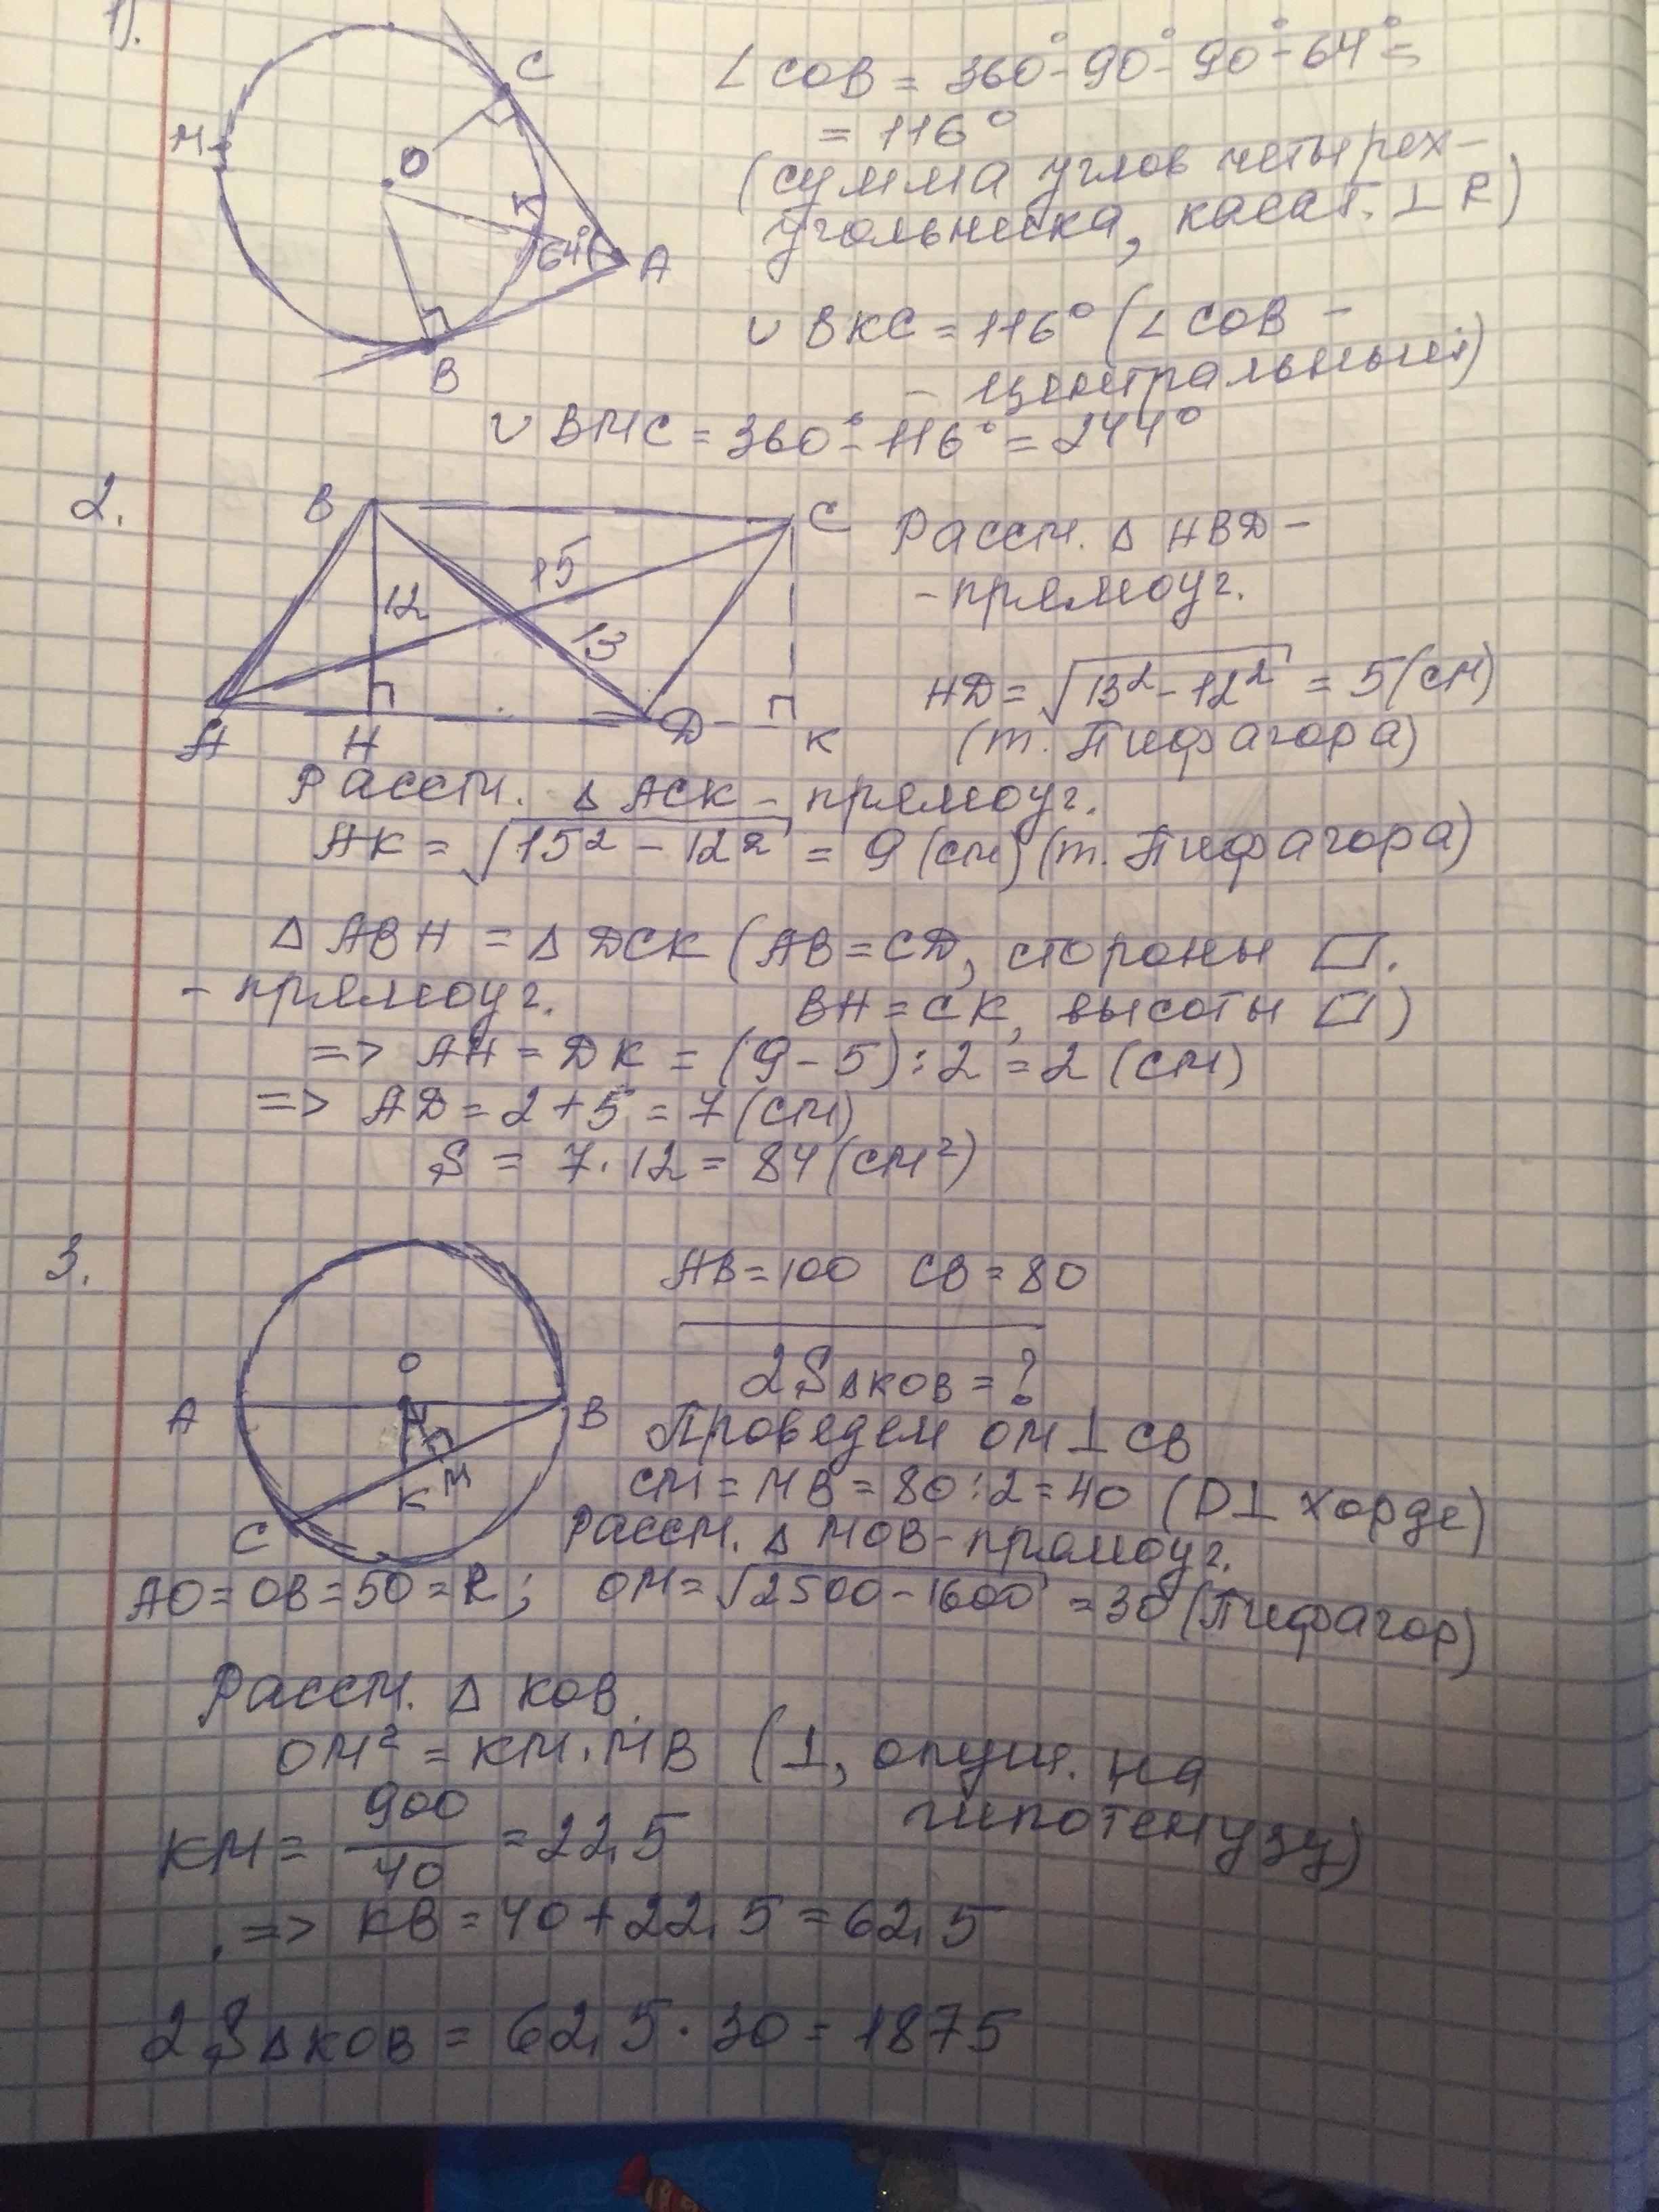 1).
C
M
O
K
64°
A
B
∠COB = 360° - 90° - 90° - 64° =
= 116°
(сумма углов четырех-
угольника, касат. ⊥ R)
∪ BKC = 116° (∠COB -
- центральный)
∪ BMC = 360° - 116° = 244°
2.
B
C
15
12
13
A
H
D
K
Рассм. △ HBD -
- прямоуг.
HD = √13² - 12² = 5 (см)
(т. Пифагора)
Рассм. △ ACK - прямоуг.
AK = √15² - 12² = 9 (см) (т. Пифагора)
△ ABH = △ DCK (AB = CD, стороны ▱.
- прямоуг. BH = CK, высоты ▱)
=> AH = DK = (9 - 5) : 2 = 2 (см)
=> AD = 2 + 5 = 7 (см)
S = 7 · 12 = 84 (см²)
3.
O
A
B
M
K
C
AB = 100 CB = 80
2S△KOB = ?
Проведем OM ⊥ CB
CM = MB = 80 : 2 = 40 (D ⊥ хорде)
Рассм. △ MOB - прямоуг.
AO = OB = 50 = R; OM = √2500 - 1600 = 30 (Пифагор)
Рассм. △ KOB.
OM² = KM · MB (⊥, опущ. на
гипотенузу)
KM = 900/40 = 22,5
=> KB = 40 + 22,5 = 62,5
2S△KOB = 62,5 · 30 = 1875